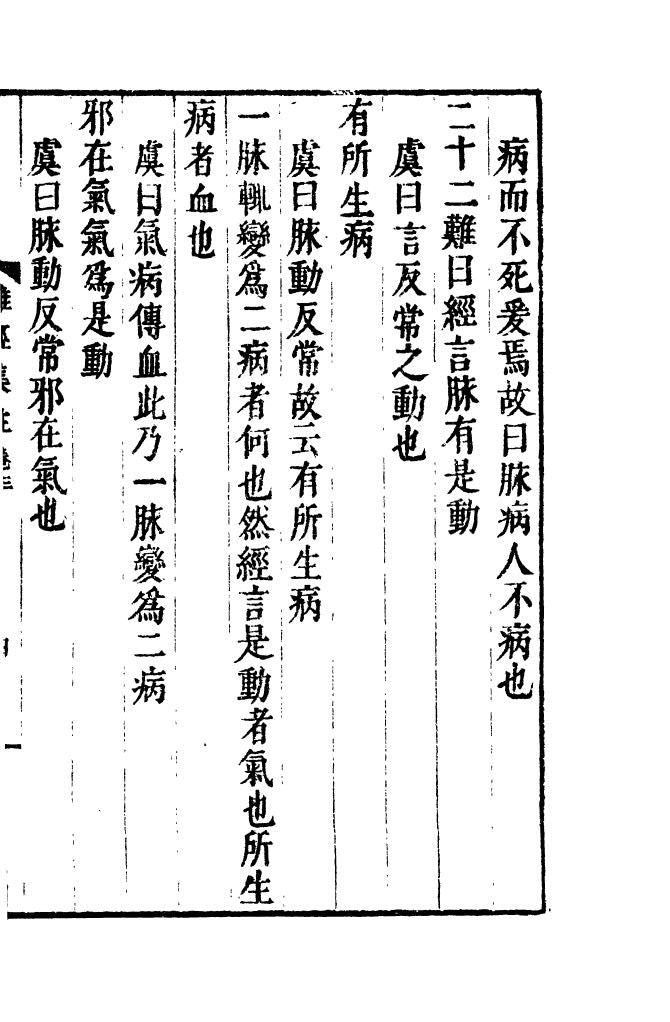 病而不死爰焉故曰脉病人不病也
二十二難曰經言脉有是動
虞曰言反常之動也
有所生病
虞曰脉動反常故云有所生病
一脉輒變爲二病者何也然經言是動者氣也所生
病者血也
虞曰氣病傳血此乃一脉變爲二病
邪在氣氣爲是動
虞曰脉動反常邪在氣也